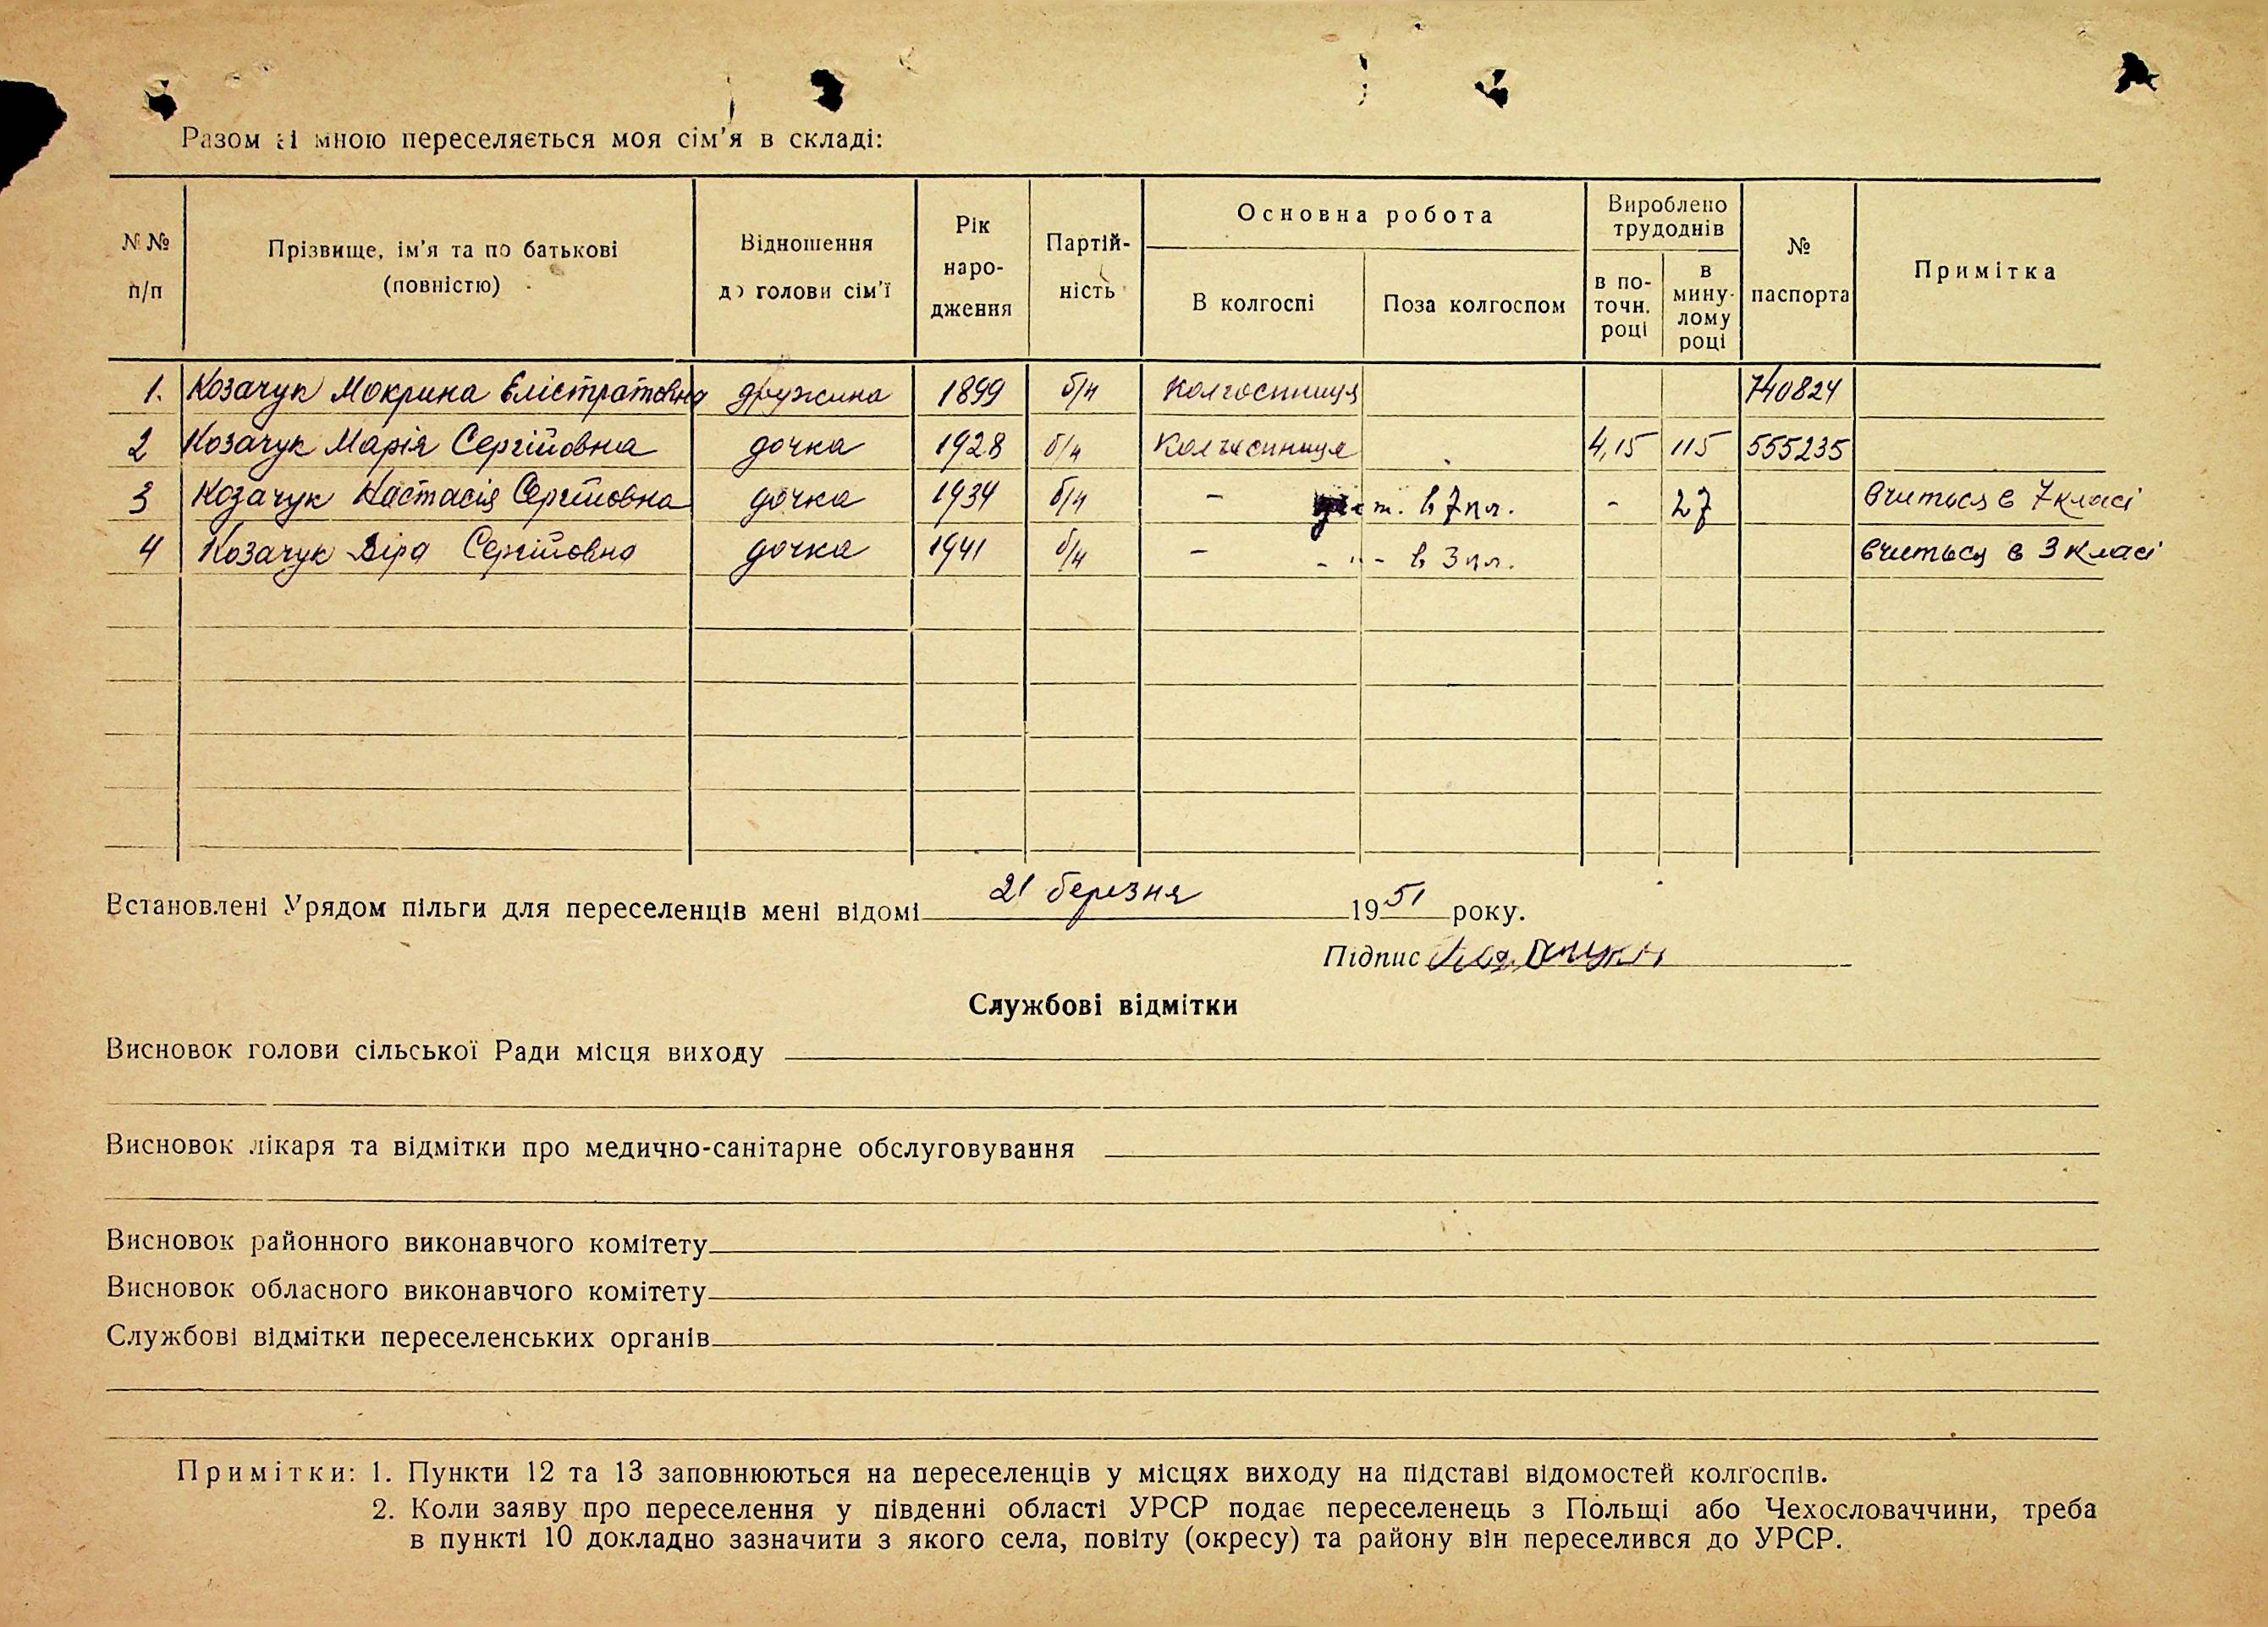 Разом зі мною переселяється моя сім'я в складі:
№№ п/п
Прізвище, ім'я та по батькові (повністю)
Відношення до голови сім'ї
Рік народження
Партійність
Основна робота
В колгоспі
Поза колгоспом
Вироблено трудоднів
в поточн. році
в минулому році
№ паспорта
Примітка
1. Козачук Мокрина Елістратовна дружина 1899 б/п Колгоспниця 740824
2 Козачук Марія Сергійовна дочка 1928 б/п Колгоспниця 4,15 115 555235
3 Козачук Настасія Сергійовна дочка 1934 б/п - в 7 кл. - 27 вчиться в 7 класі
4 Козачук Віра Сергійовна дочка 1941 б/п - -"- в 3 кл. вчиться в 3 класі
Встановлені Урядом пільги для переселенців мені відомі 21 березня 1951 року.
Підпис
Службові відмітки
Висновок голови сільської Ради місця виходу
Висновок лікаря та відмітки про медично-санітарне обслуговування
Висновок районного виконавчого комітету
Висновок обласного виконавчого комітету
Службові відмітки переселенських органів
Примітки: 1. Пункти 12 та 13 заповнюються на переселенців у місцях виходу на підставі відомостей колгоспів.
2. Коли заяву про переселення у південні області УРСР подає переселенець з Польщі або Чехословаччини, треба
в пункті 10 докладно зазначити з якого села, повіту (окресу) та району він переселився до УРСР.